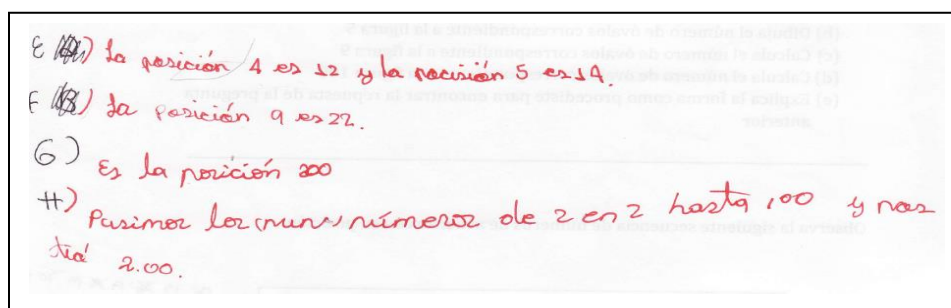 E) La posición 4 es 12 y la pocisión 5 es 14.
F) La posición 9 es 22.
G) Es la posición 200
H) Pusimos los números de 2 en 2 hasta 100 y nos
dió 2.00.